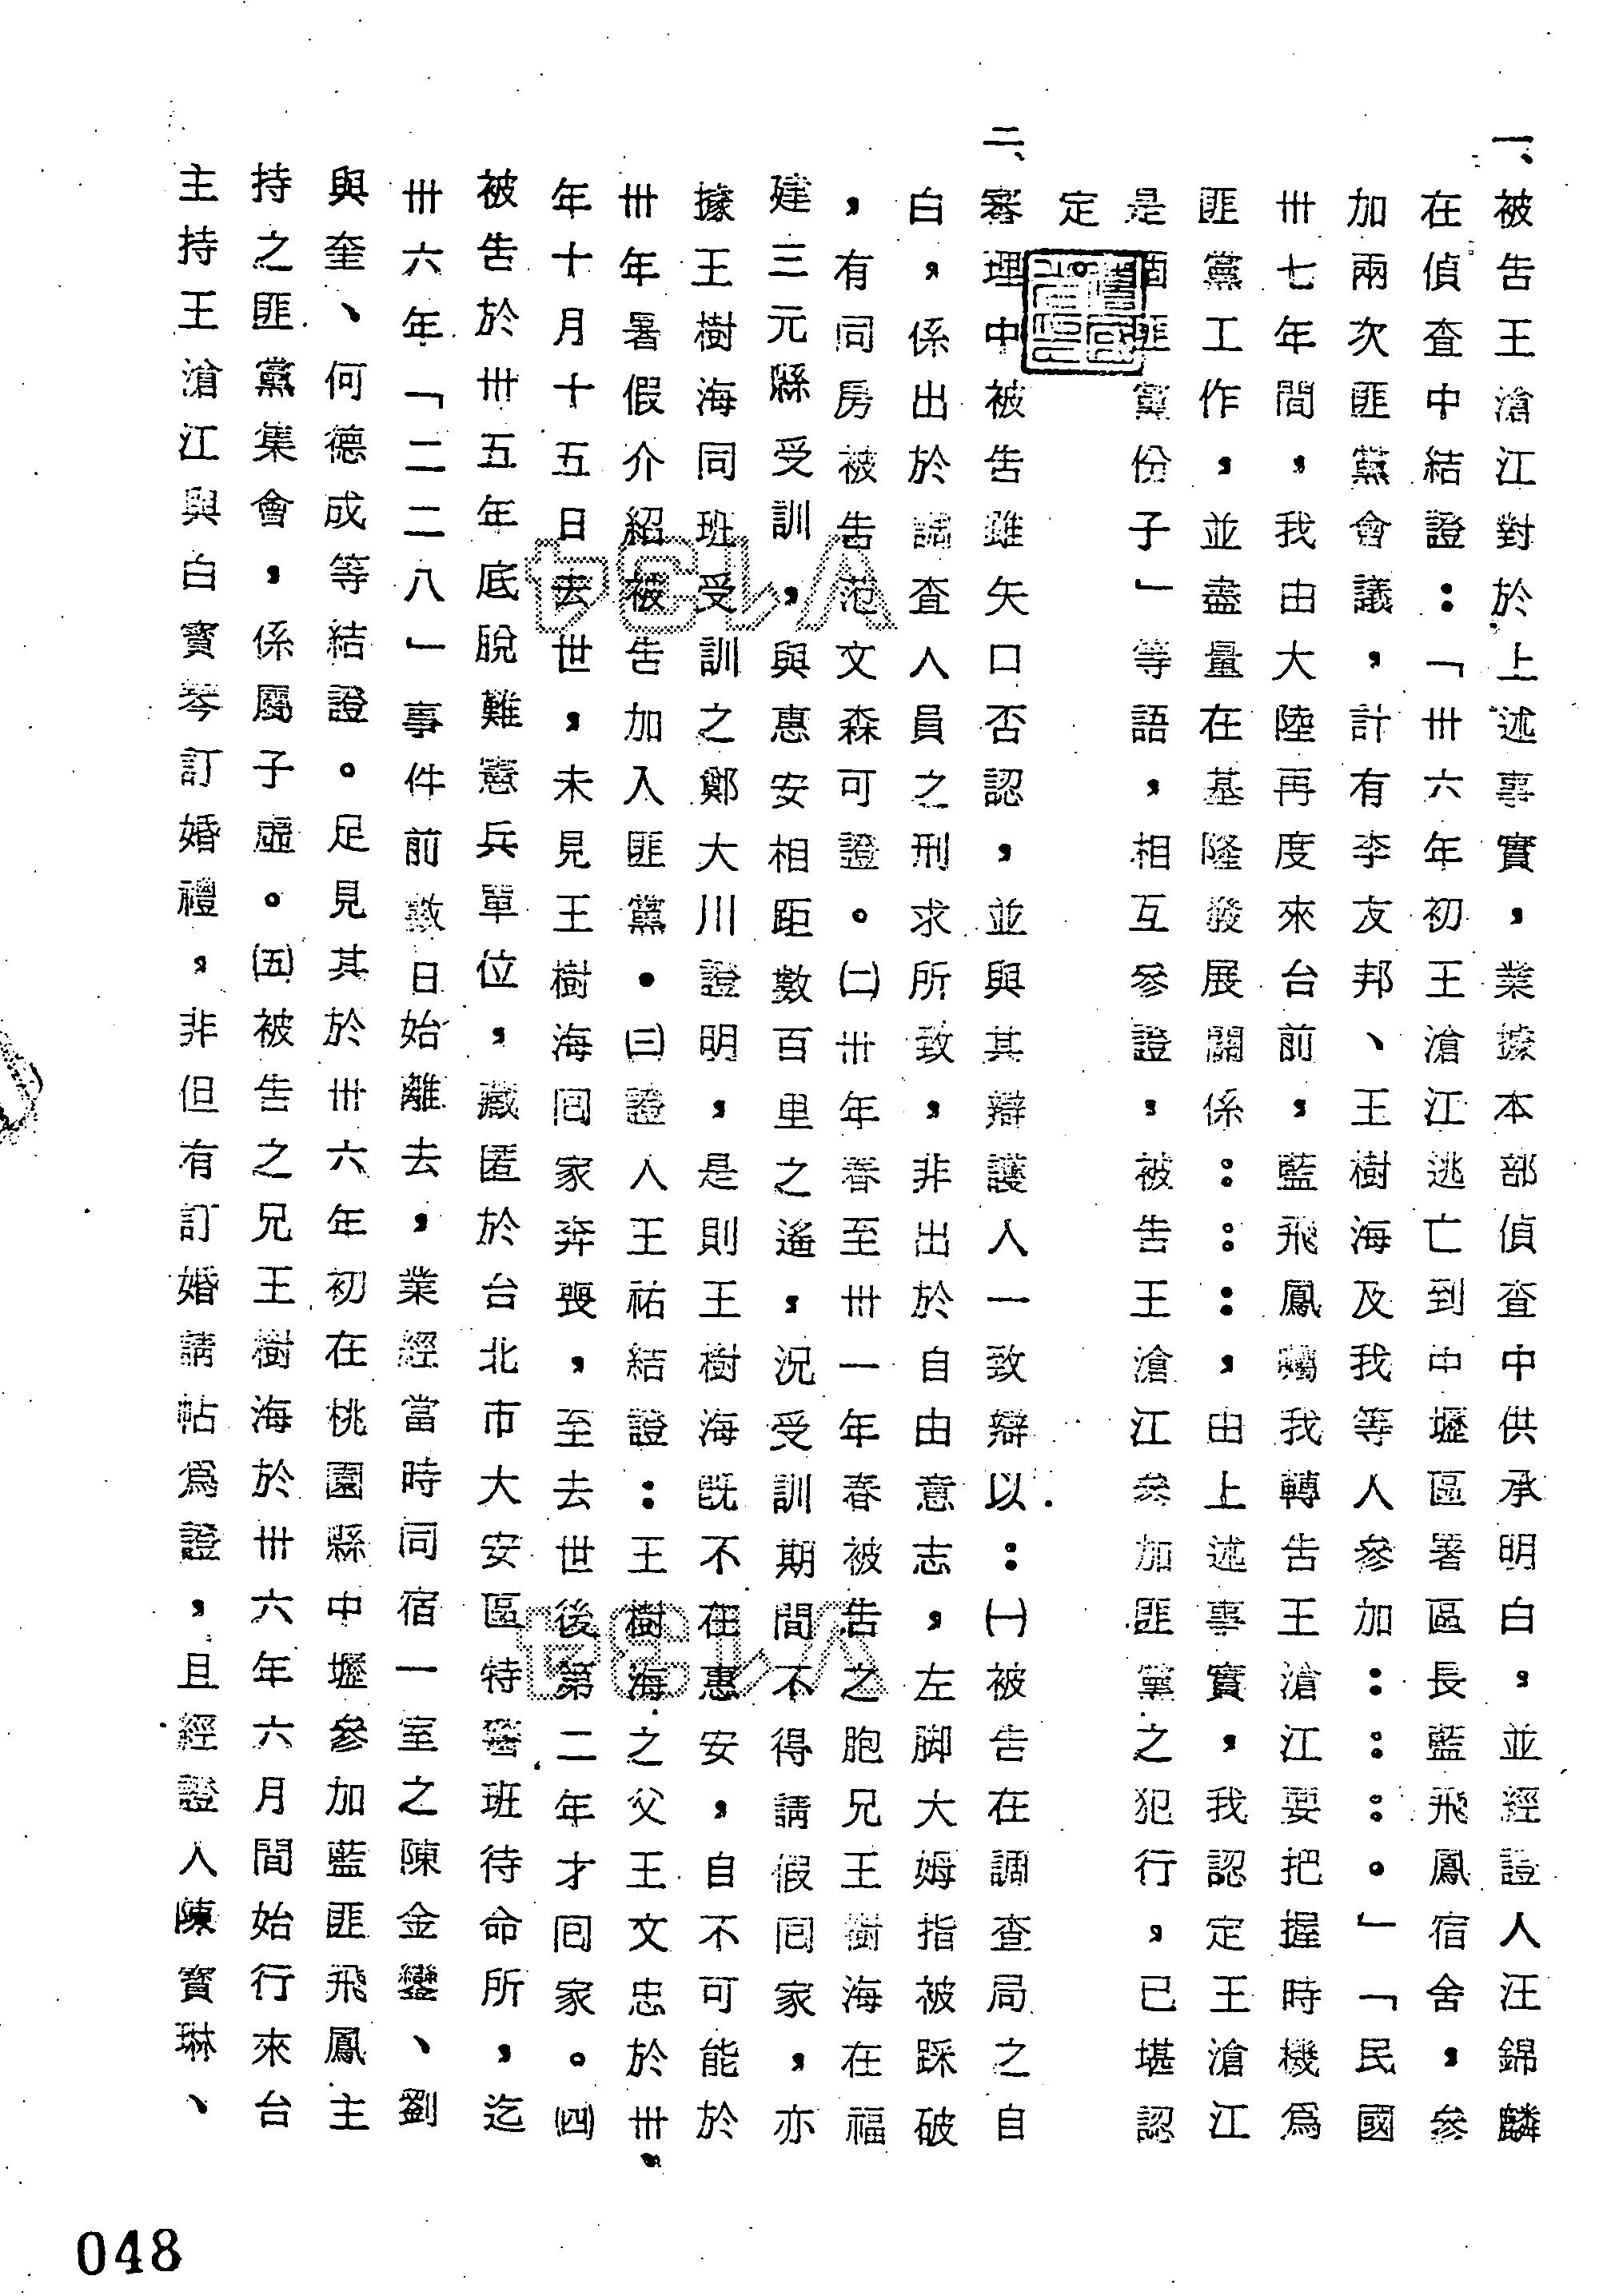 一、被告王滄江對於上述事實，業據本部偵查中供承明白，並經證人汪錦麟
在偵查中結證：「卅六年初王滄江逃亡到中壢區署區長藍飛鳳宿舍，參
加兩次匪黨會議，計有李友邦、王樹海及我等人參加：：：。」「民國
卅七年間，我由大陸再度來台前，藍飛鳳囑我轉告王滄江要把握時機為
匪黨工作，並盡量在基隆發展關係：：：，由上述事實，我認定王滄江
是個匪黨份子」等語，相互參證，被告王滄江參加匪黨之犯行，已堪認
定。
二、審理中被告雖矢口否認，並與其辯護人一致辯以：㈠被告在調查局之自
白，係出於該查人員之刑求所致，非出於自由意志，左脚大姆指被踩破
，有同房被告范文森可證。㈡卅年春至卅一年春被告之胞兄王樹海在福
建三元縣受訓，與惠安相距數百里之遙，況受訓期間不得請假回家，亦
據王樹海同班受訓之鄭大川證明，是則王樹海既不在惠安，自不可能於
卅年暑假介紹被告加入匪黨。㈢證人王祐結證：王樹海之父王文忠於卅
年十月十五日去世，未見王樹海回家奔喪，至去世後第二年才回家。㈣
被告於卅五年底脫難憲兵單位，藏匿於台北市大安區特警班待命所，迄
卅六年「二二八」事件前數日始離去，業經當時同宿一室之陳金鑾、劉
與奎、何德成等結證。足見其於卅六年初在桃園縣中壢參加藍匪飛鳳主
持之匪黨集會，係屬子虛。㈤被告之兄王樹海於卅六年六月間始行來台
主持王滄江與白寶琴訂婚禮，非但有訂婚請帖為證，且經證人陳寶琳、
048